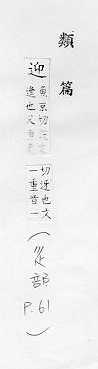 類篇
迎
魚京切
逆也又魚
切迓也文
一重音一
(辵部
P.61)